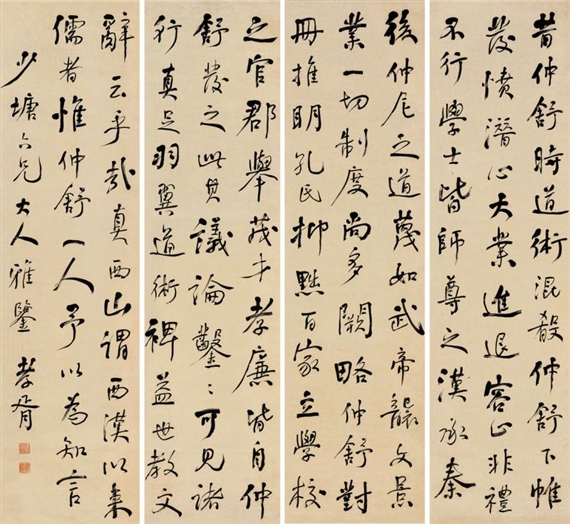 昔仲舒時道術混殽仲舒下帷
發憤潛心大業進退容止非禮
不行學士皆師尊之漢承秦
後仲尼之道蔑如武帝襲文景
業一切制度尚多闕略仲舒對
冊推明孔氏抑黜百家立學校
之官郡舉茂才孝廉皆自仲
舒發之此其議論鑿〻可見諸
行真足羽翼道術裨益世教文
辭云乎哉真西山謂西漢以來
儒者惟仲舒一人予以為知言
少塘六兄大人雅鑒 孝胥